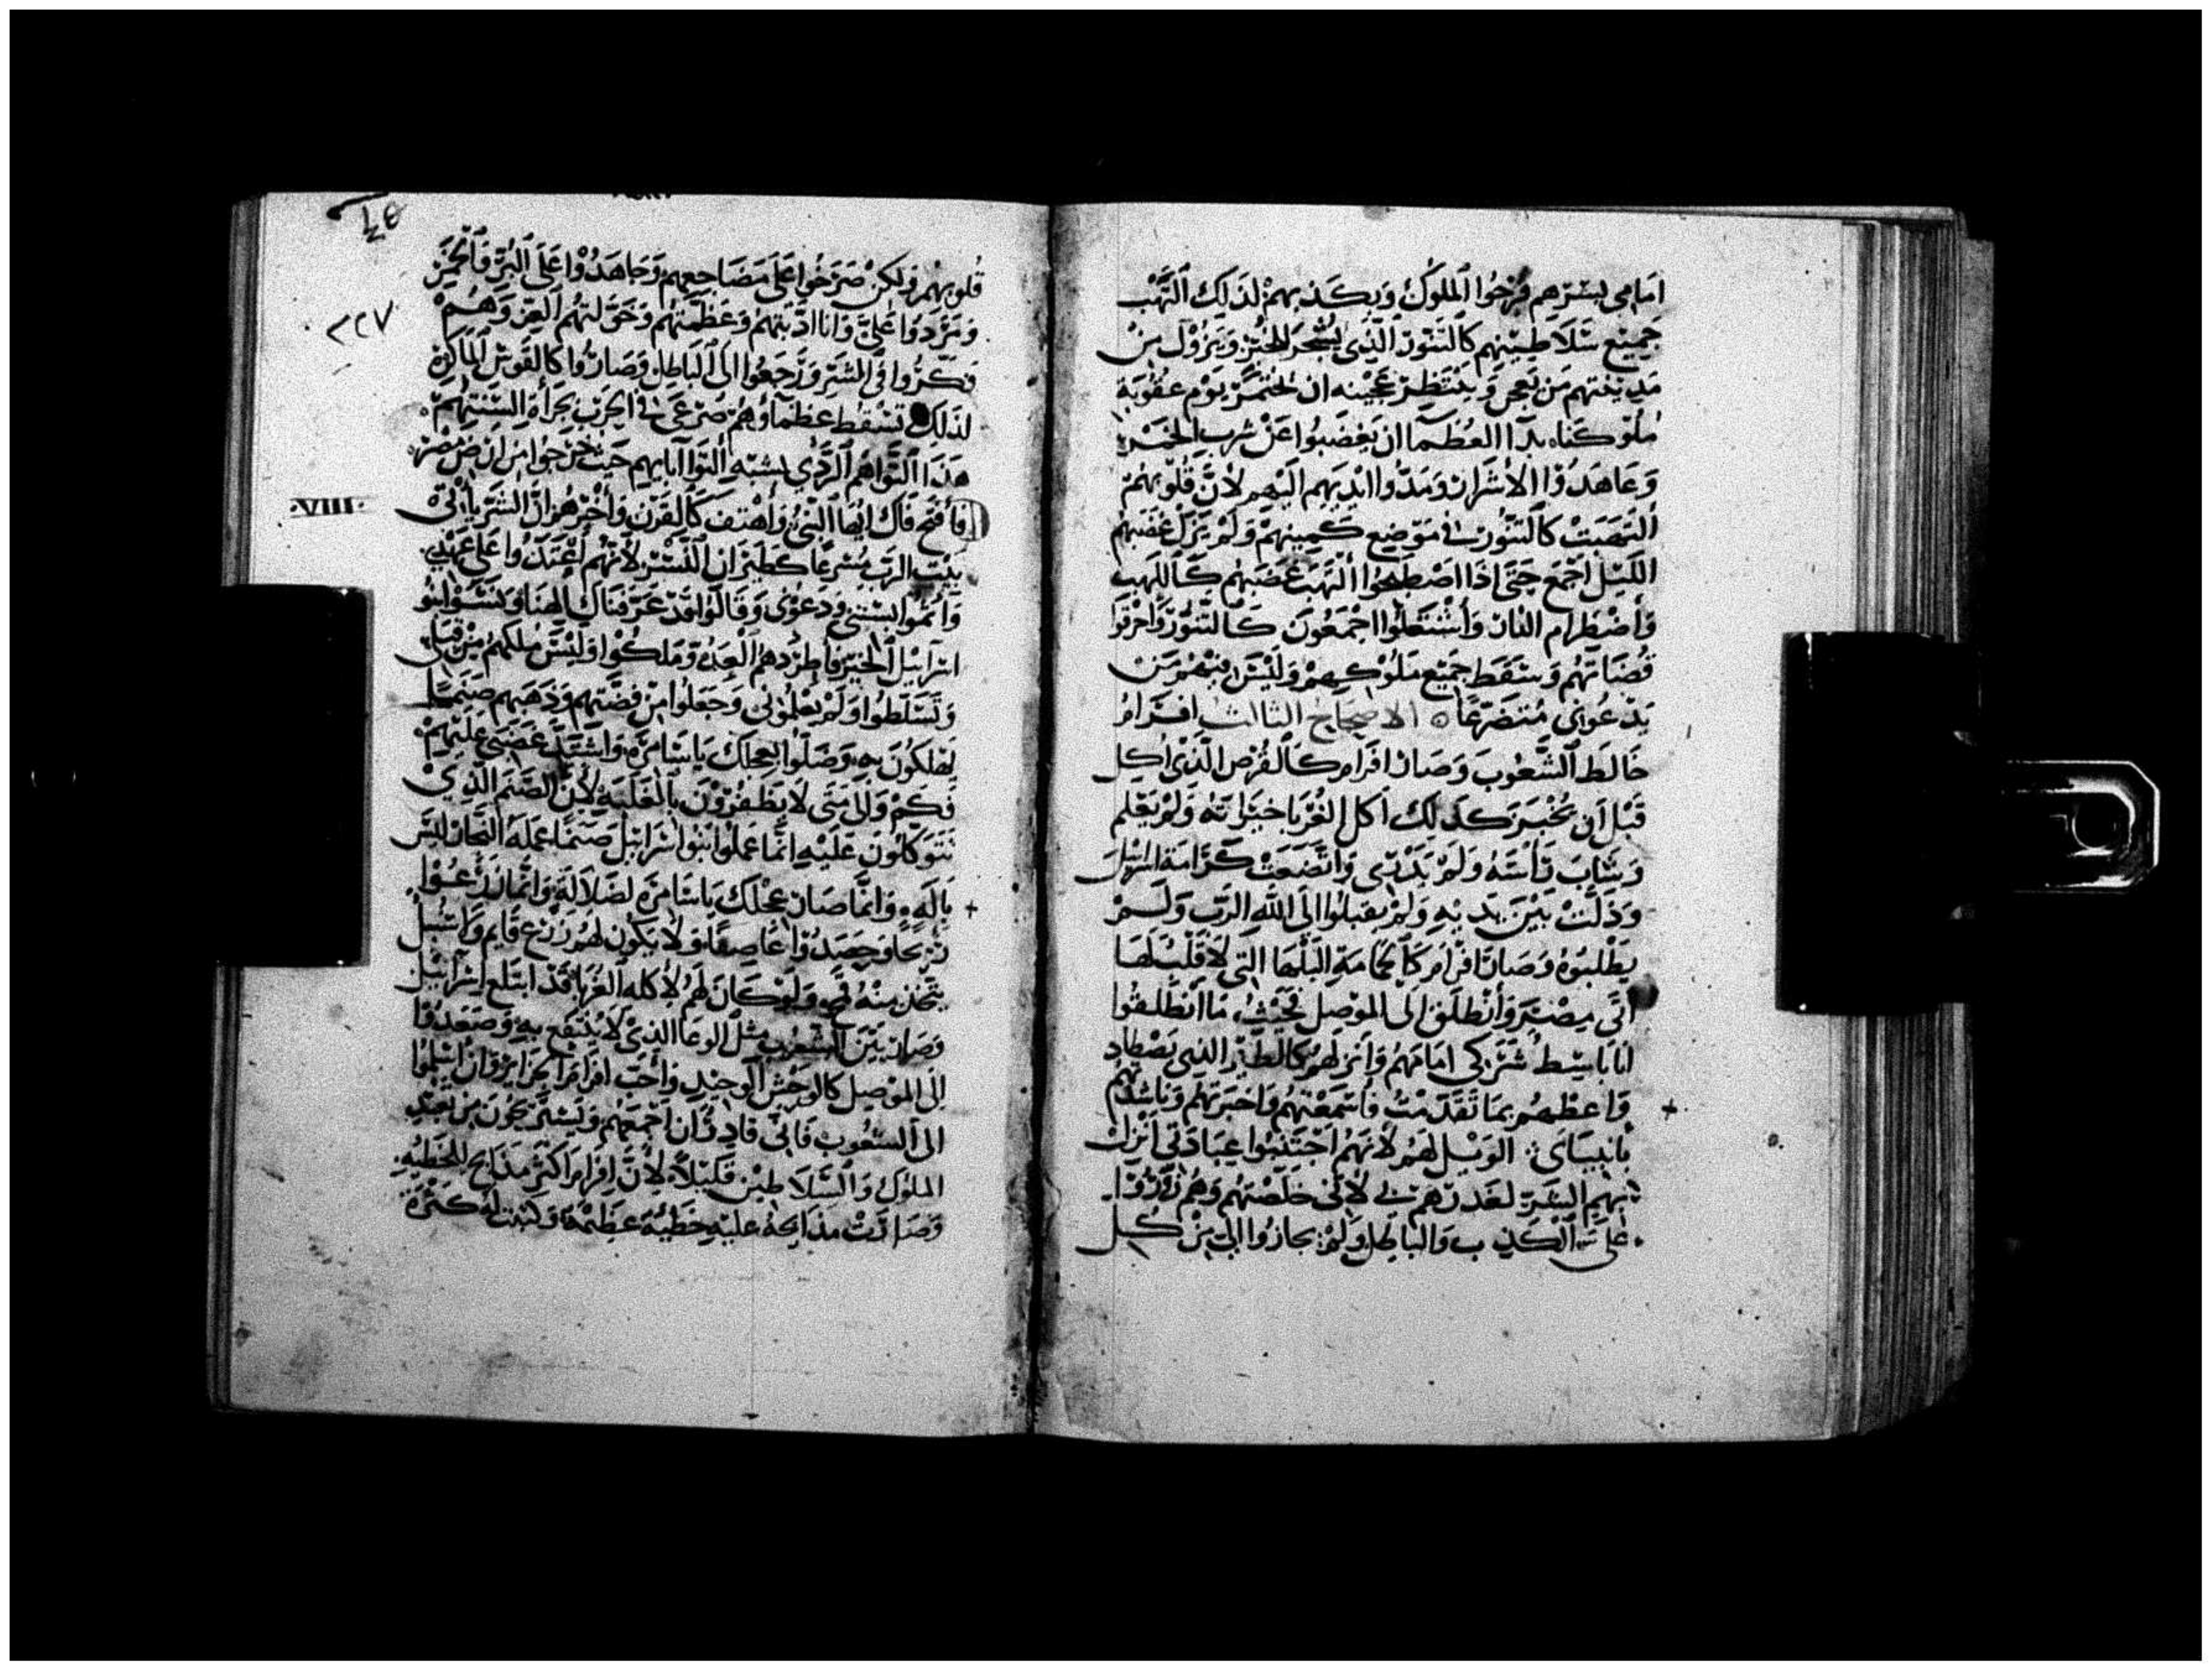 امامى بشرهم فرحوا الملوك وبكذبهم لذلك التهب
جميع سلاطينهم كالتنور الذى يسجر للخبز ويزول من
مدينتهم من يعجن وينتظر عجينه ان يختمر يوم عقوبة
ملوكنا بدا العظما ان يغضبوا عن شرب الخمر
وعاهدوا الاشرار ومدوا ايديهم اليهم لان قلوبهم
التهبت كالتنور فى موضع كمينهم ولم يزل غضبهم
الليل اجمع حتى اذا اصطبحوا التهب غضبهم كاللهب
واضطرام النار واشتعلوا اجمعون كالتنور واحرقوا
قضاتهم وسقط جميع ملوكهم وليس فيهم من
يدعونى متضرعا ٥ الاصحاح الثالث افرام
خالط الشعوب وصار افرام كالقرص الذى اكل
قبل ان يختبز كذلك اكل الغربا خيراته ولم يعلم
وشاب راسه ولم يدرى واتضعت كرامة اسرايل
وذلت بين يديه ولم يقبلوا الى الله الرب ولم
يطلبوه وصار افرام كالحمامة البلها التى لا قلب لها
اتى مصر وانطلق الى الموصل بحيث ما انطلقوا
انا باسط شركى امامهم وانزلهم كالطير الذى يصطاد
واعظهم بما تقدمت فاسمعتهم واخبرتهم وناشدتهم
بانبياى الويل لهم لانهم اجتنبوا عبادتى انزل
بهم الشر لغدرهم بى لانى خلصتهم وهم زوروا
على الكذب والباطل ولم يجازوا الى من كل
٤٥
٢٢٧
قلوبهم ولكن صرخوا على مضاجعهم وجاهدوا على البر والخمر
وتمردوا على وانا ادبتهم وعظمتهم وخولتهم العز وهم
فكروا فى الشر ورجعوا الى الباطل وصاروا كالقوس الماكرة
لذلك تسقط عظماوهم صرعى فى الحرب بجراة السنتهم
هذا التواهم الردى يشبه التوا ابايهم حيث خرجوا من ارض مصر
VIII
فافتح فاك ايها النبى واهتف كالقرن واخبرهم ان الشر ياتى
بيت الرب مسرعا كطيران النسر لانهم اعتدوا على عهدى
واثموا بسنتى ودعونى وقالوا قد عرفناك الهنا ونسوا بنو
اسرايل الخير فاطردهم العدو وملكوا وليس ملكهم من قبلى
وتسلطوا ولم يعلمونى وجعلوا من فضتهم وذهبهم صنما
يهلكون به وضلوا بعجلك يا سامرة واشتد غضبى عليهم
فكم والى متى لا يظفرون بالغلبة لان الصنم الذى
تتوكلون عليه انما عملوا بنوا اسرايل صنما عمله النجار ليس
باله وانما صار عجلك يا سامرة لضلالة وانما زرعوا
ريحا وحصدوا عاصفا ولا يكون لهم زرع قايم واسبل
يتخذ منه قمح ولو كان لهم لاكله الغربا قد ابتلع اسرائيل
وصار بين الشعوب مثل الوعا الذى لا ينتفع به وصعدوا
الى الموصل كالوحش الوحيد واحب افرام الجزاير وان اسلموا
الى الشعوب فانى قادر ان اجمعهم ويستريحون من بعد
الملوك والسلاطين قليلا لان افرام اكثر مذابح للخطيه
وصارت مذابحه عليه خطية عظيمة وكتبت له كثرة